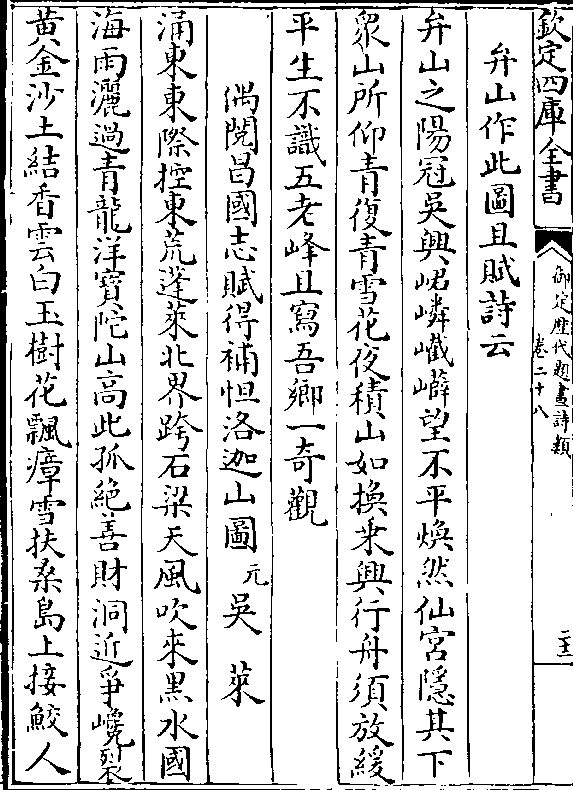 欽定四庫全書
御定歴代題畫詩類
卷二十八
二十二
弁山作此圖且賦詩云
弁山之陽冠吳興峮嶙巀嶭望不平煥然仙宮隱其下
衆山所仰青復青雪花夜積山如換乘興行舟須放緩
平生不識五老峰且寫吾鄉一奇觀
偶閲昌國志賦得補怛洛迦山圖
元吳萊
涌東東際控東荒蓬萊北界跨石梁天風吹來黒水國
海雨灑過青龍洋寳陀山高此孤絶善財洞近爭巉裂
黄金沙土結香雲白玉樹花飄瘴雪扶桑島上接鮫人